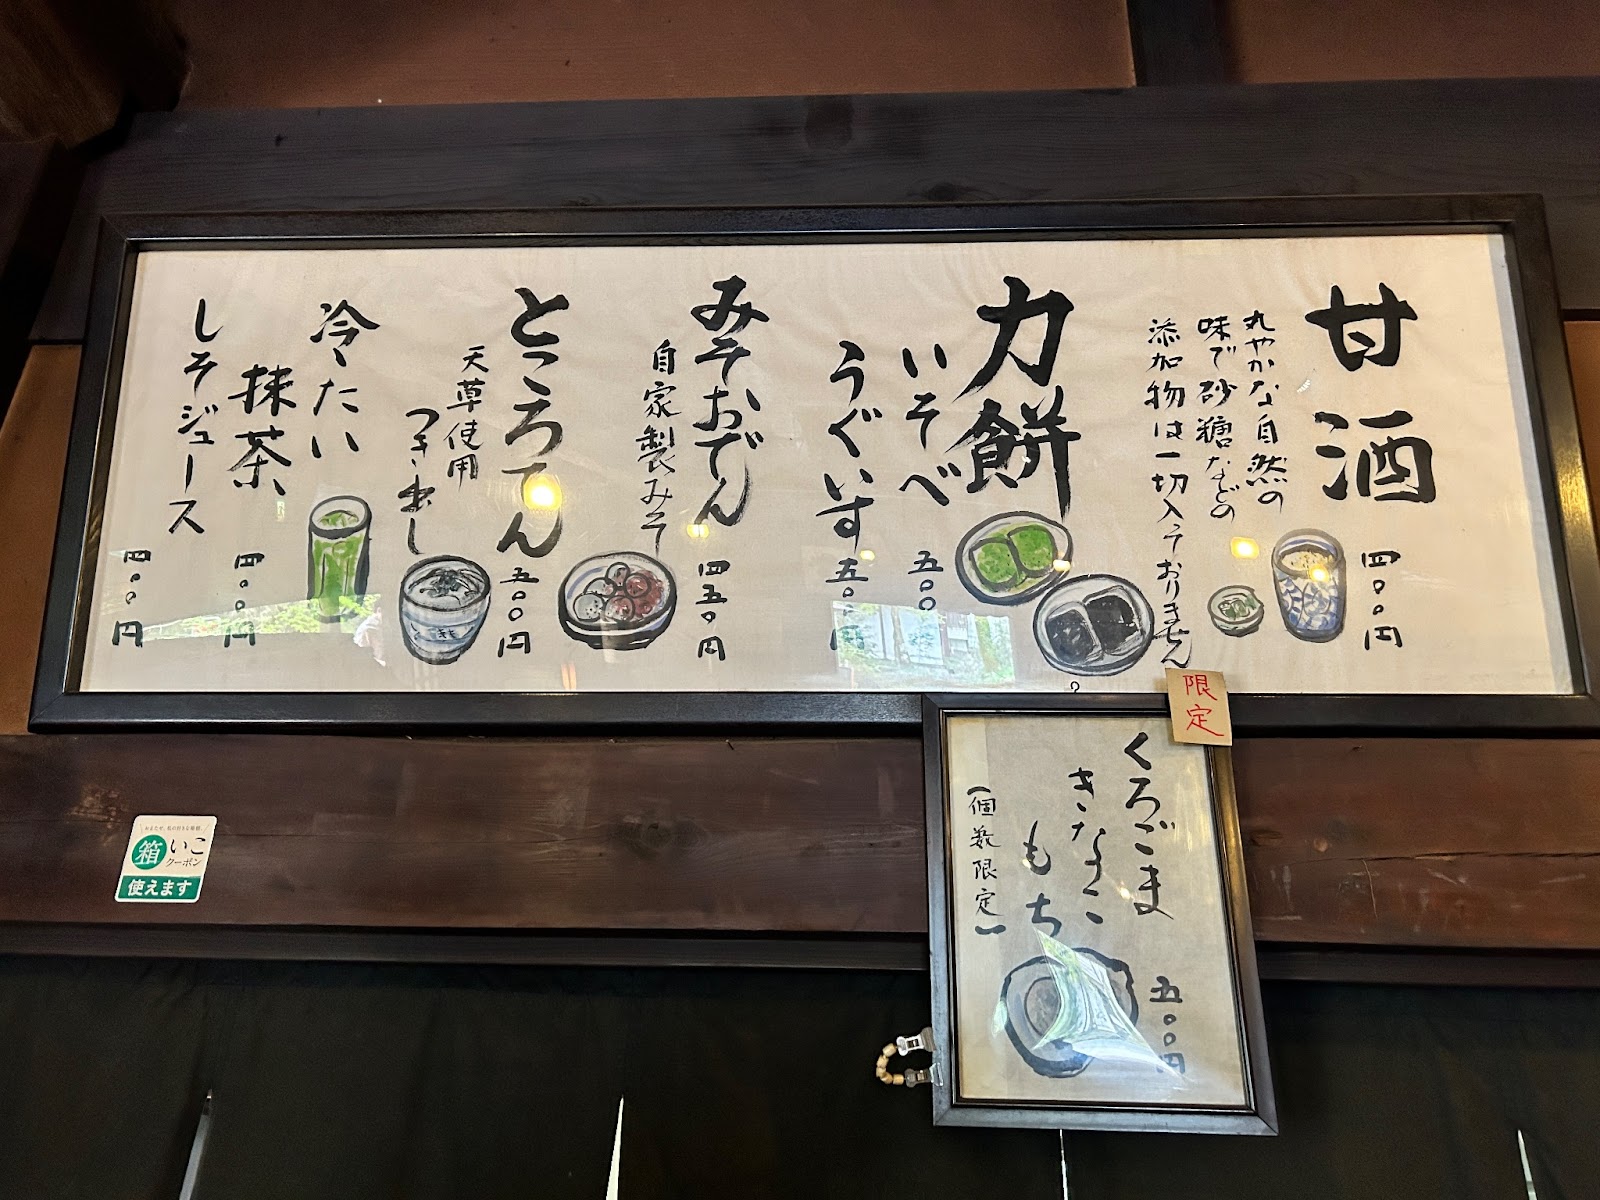 甘酒
丸やかな自然の
味で砂糖などの
添加物は一切入っておりません
四〇〇円
力餅
いそべ
五〇〇
うぐいす
五〇〇円
みそおでん
自家製みそ
四五〇円
ところてん
天草使用
つき出し
五〇〇円
冷たい
抹茶
四〇〇円
しそジュース
四〇〇円
限定
くろごま
きなこ
もち
(個数限定)
五〇〇円
箱いこ
クーポン
使えます